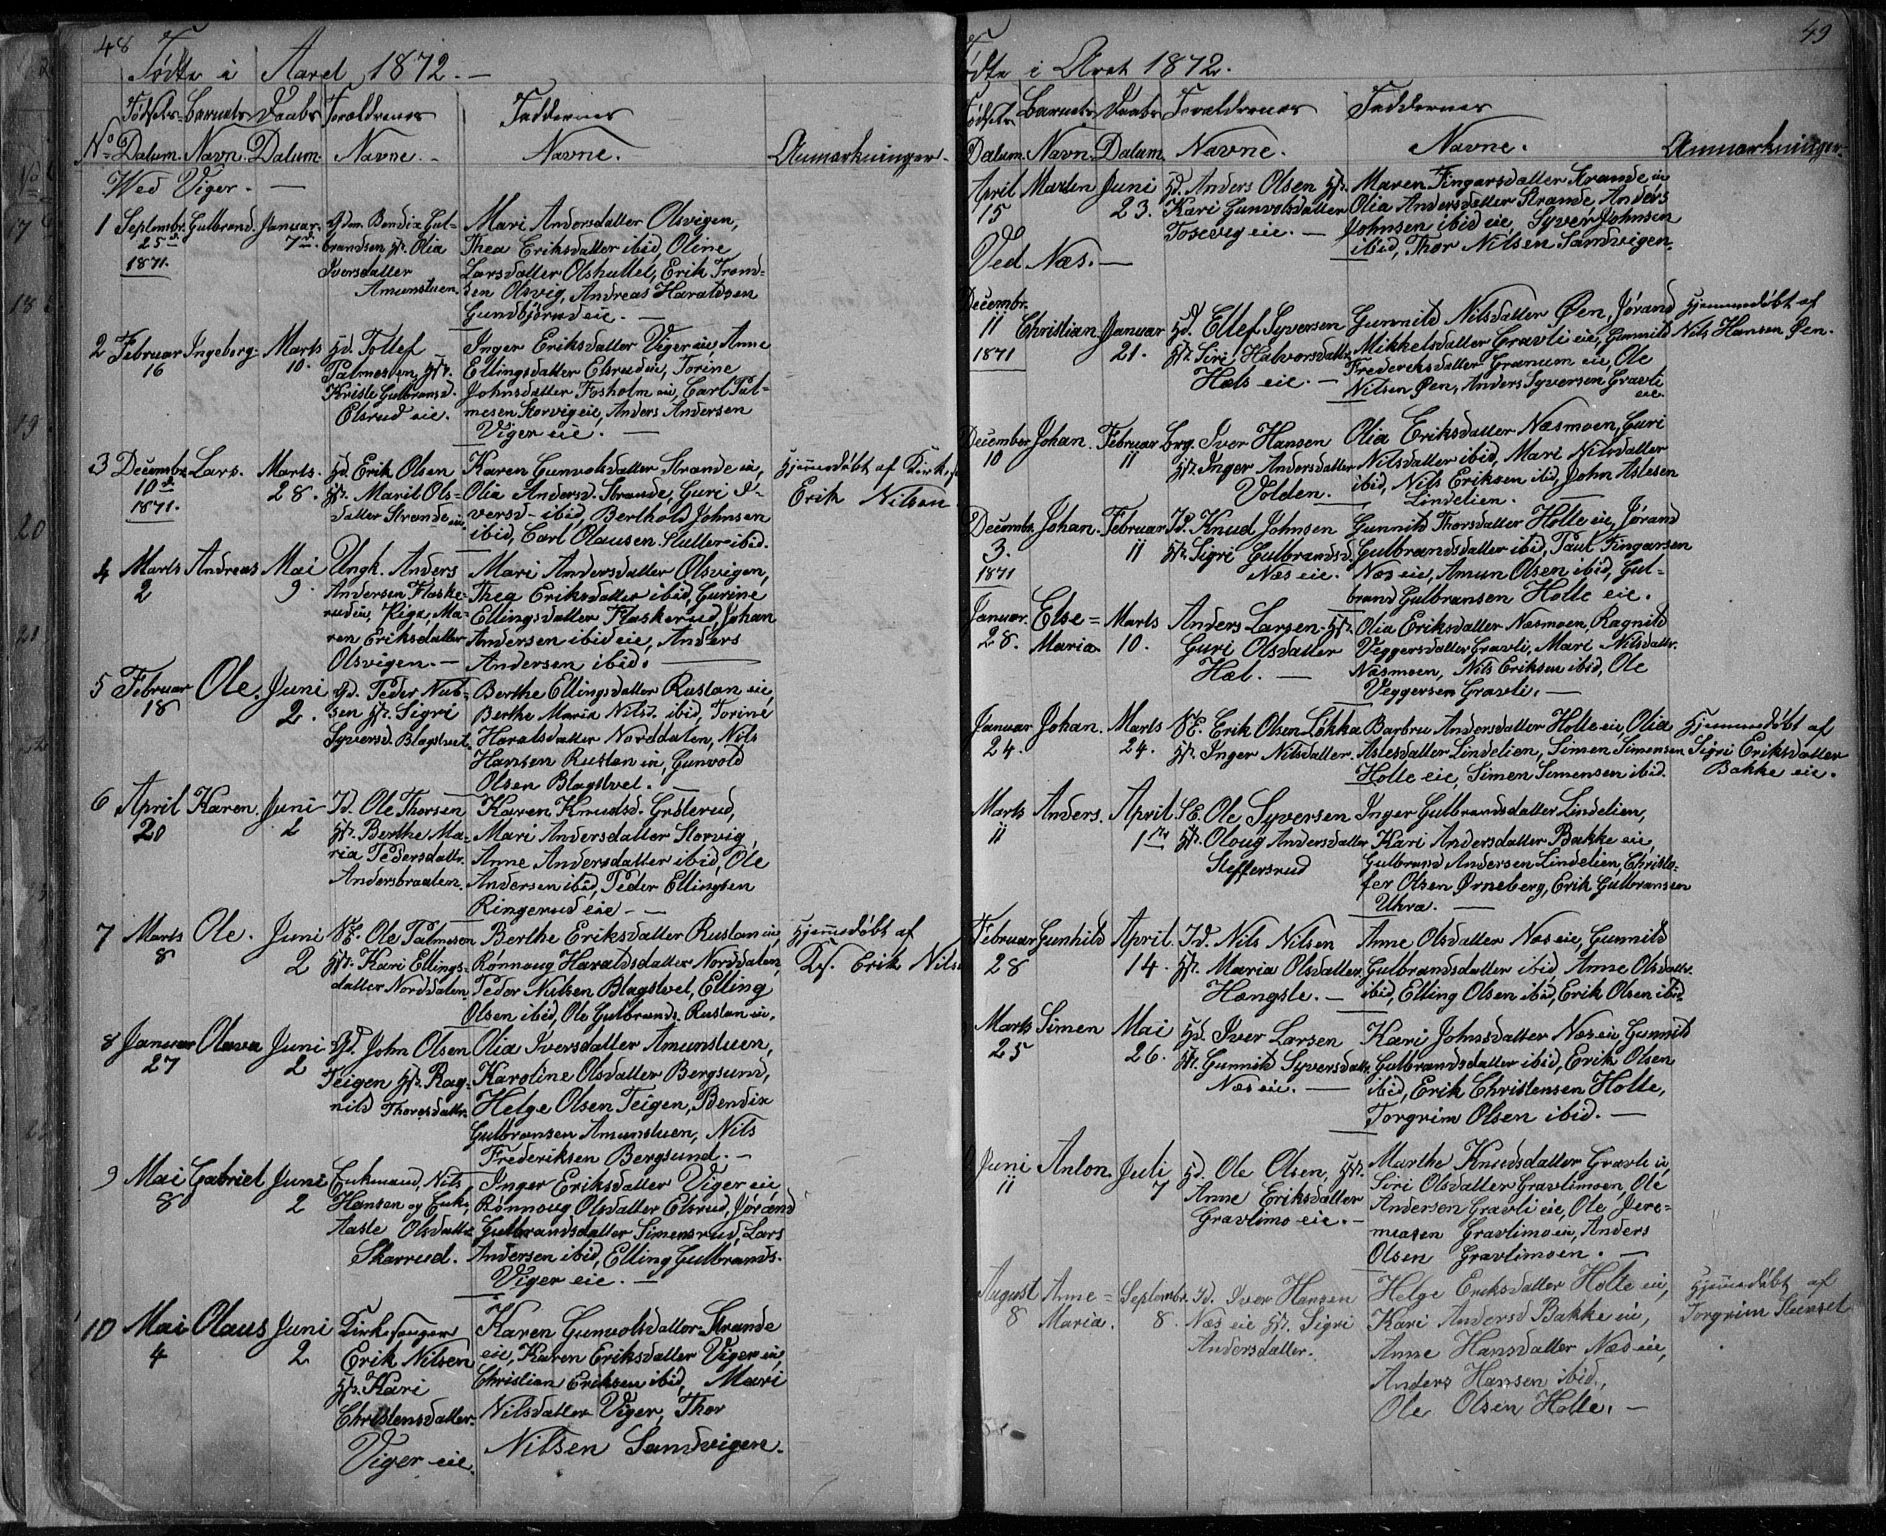 48
Födte i Aaret 1872. —
Fødsels- Barnets Daabs Forældrenes Faddernes
No Datum. Navn. Datum. Navne. Navne. Anmærkninger.
Wed Viger. —
1 Septembr. Gulbrand. Januar. Gdm. Bendix Gul- Mari Andersdatter Olsvigen,
25d 7de brandsen Hst. Olia Thea Eriksdatter ibid, Oline
1871. Iversdatter Larsdatter Olshullet, Erik Trond-
Amunstuen. sen Olsvig, Andreas Haraldsen
Gundbjørud eie. —
2 Februar Ingeborg. Marts Hd. Tollef Inger Eriksdatter Viger eie, Anne
16 10. Palmesen, Hst. Ellingsdatter Elsrud eie, Torine
Kristi Gulbransd. Johnsdatter Fosholm eie, Carl Pal-
Elsrud eie. mesen Storvig eie, Anders Andersen
Viger eie. —
3 Decembr. Lars. Marts. Hd. Erik Olsen Karen Gunvolsdatter Strande eie, Hjemmedøbt af Kirkes.
10d 28. Hst. Marit Ols- Olia Andersd. Strande, Guri I- Erik Nilsen
1871. datter Strande eie versd- ibid, Berthold Johnsen
ibid, Carl Olausen Slutter ibid.
4 Marts Andreas Mai Ungk. Anders Mari Andersdatter Olsvigen,
2 9. Andersen Flaske- Thea Eriksdatter ibid, Gurine
rud eie, Pige, Ma- Ellingsdatter Flaskerud, Johan
ren Eriksdatter Andersen ibid eie, Anders
Olsvigen. — Andersen ibid. —
5 Februar Ole. Juni Gd. Peder Nub- Berthe Ellingsdatter Rustan eie,
18 2. sen Hst. Sigri Berthe Maria Nilsd. ibid, Torine
Syversd. Blagstvet. Haralsdatter Norddalen, Nils
Hansen Rustan eie, Gunvold
Olsen Blagstvet. —
6 April Karen. Juni Id. Ole Thorsen Karen Knudsd. Grøterud,
20 2 Hst. Berthe Ma- Mari Andersdatter Storvig,
ria Pedersdatt. Anne Andersdatter ibid, Ole
Andersbraaten. Andersen ibid, Peder Ellingsen
Ringerud eie. —
7 Marts Ole. Juni Sk. Ole Palmesen Berthe Eriksdatter Rustan eie, Hjemmedøbt af
8 2 Hst. Kari Ellings- Rønnoug Haraldsdatter Norddalen, Ks. Erik Nils
datter Norddalen. Peder Nubsen Blagstvet, Elling
Olsen ibid, Ole Gulbrands. Rustan eie.
8 Januar Olava Juni Gd. John Olsen Olia Iversdatter Amunstuen,
27 2 Teigen Hst. Rag- Karoline Olsdatter Bergsund,
nild Thoresdatt. Helge Olsen Teigen, Bendix
Gulbransen Amunstuen, Nils
Frederiksen Bergsund. —
9 Mai Gabriel Juni Enkemand, Nils Inger Eriksdatter Viger eie,
8 2 Hansen og Enke, Rønnoug Olsdatter Elsrud, Jørand
Aasle Olsdatte Gulbrandsdatter Simensrud, Lars
Skarrud. Andersen ibid, Elling Gulbrands.
Viger eie. —
10 Mai Olaus Juni Kirkesanger Karen Gunvolsdatter Strande
4 2 Erik Nilsen eie, Karen Eriksdatter Viger eie,
Hst. Kari Christian Eriksen ibid, Mari
Christensdatter Nilsdatter Viger, Thor
Viger eie. Nilsen Sandvigen.
49
ødte i Aret 1872.
Fødsels Barnets Daabs Forældrenes Faddernes
Datum. Navn. Datum. Navne. Navne. Anmærkninger.
April Marten Juni Hd. Anders Olsen Hst. Maren Fingarsdatter Strande eie
15 23. Kari Gunvolsdatter Olia Andersdatter Strande, Anders
Tosevig eie. — Johnsen ibid eie, Syver Johnsen
ibid, Thor Nilsen Sandvigen.
Ved Næs. —
Decembr.
11 Christian Januar Hd. Ellef Syversen Gunnild Nilsdatter Øen, Jørand Hjemmedøbt af
1871 21. Hst. Siri Halvorsdatt. Mikkelsdatter Gravli eie, Gunnild Nils Hansen Øen.
Hæls eie. — Fredereksdatter Grænum eie, Ole
Nilsen Øen, Anders Syversen Gravli
eie.
December Johan. Februar Brg. Iver Hansen Olia Eriksdatter Næsmoen, Guri
10 11 Hst. Inger Andersdatter Nilsdatter ibid, Mari Nilsdatter
Volden. ibid, Nils Eriksen ibid, John Aslesen
Lindelien. —
Decembr. Johan. Februar Id. Knud Johnsen Gunnild Thorsdatter Holte eie, Jørand
3. 11 Hst. Sigri Gulbrandsd. Gulbrandsdatter ibid, Paul Fingarsen
1871 Næs eie. Næs eie, Amun Olsen ibid, Gul-
brand Gulbransen Holte eie.
Januar. Else = Marts Anders Larsen. Hst. Olia Eriksdatter Næsmoen, Ragnild
28. Maria. 10. Guri Olsdatter Veggersdatter Gravli, Mari Nilsdatt.
Hæl. — Næsmoen, Nils Eriksen ibid, Ole
Veggersen Gravli. —
Januar Johan. Marts Sk. Erik Olsen Løkka Barbru Andersdatter Holte eie, Olia Hjemmedøbt af
24. 24. Hst. Inger Nilsdatter. Aslesdatter Lindelien, Simen Simensen Sigri Eriksdatter
Holte eie, Simen Simensen ibid. Bakke eie.
Marts Anders. April Sk. Ole Syversen Inger Gulbrandsdatter Lindelien,
11 1ste Hst. Oloug Andersdatter Kari Andersdatter Bakke eie,
Steffersrud Gulbrand Andersen Lindelien, Christo-
fer Olsen Ørneberg, Erik Gulbransen
Uhra. —
Februar Gunhild April. Id. Nils Nilsen Anne Olsdatter Næs eie, Gunnild
28 14. Hst. Maria Olsdatter. Gulbrandsdatter ibid Anne Olsdatt.
Hængsle. — ibid, Elling Olsen ibid, Erik Olsen ibid.
Marts Simen Mai Hd. Iver Larsen Kari Johnsdatter Næs eie, Gunnild
25 26. Hst. Gunnild Syversdatt. Gulbrandsdatter ibid, Erik Olsen
Næs eie. — ibid, Erik Christensen Holte,
Torgrim Olsen ibid. —
Juni Anton. Juli Hd. Ole Olsen, Hst. Marthe Knudsdatter Gravli eie,
11 7 Anne Eriksdatter Siri Olsdatter Gravlimoen, Ole
Gravlimo eie. — Andersen Gravli eie, Ole Jere-
miasen Gravlimo eie, Anders
Olsen Gravlimoen. —
August Anne = Septembr. Id. Iver Hansen Helge Eriksdatter Holte eie, Hjemmedøbt af
8 Maria. 8. Næs eie Hst. Sigri Kari Andersd Bakke eie, Torgrim Stenset
Andersdatter. Anne Hansdatter Næs eie,
Anders Hansen ibid,
Ole Olsen Holte. —